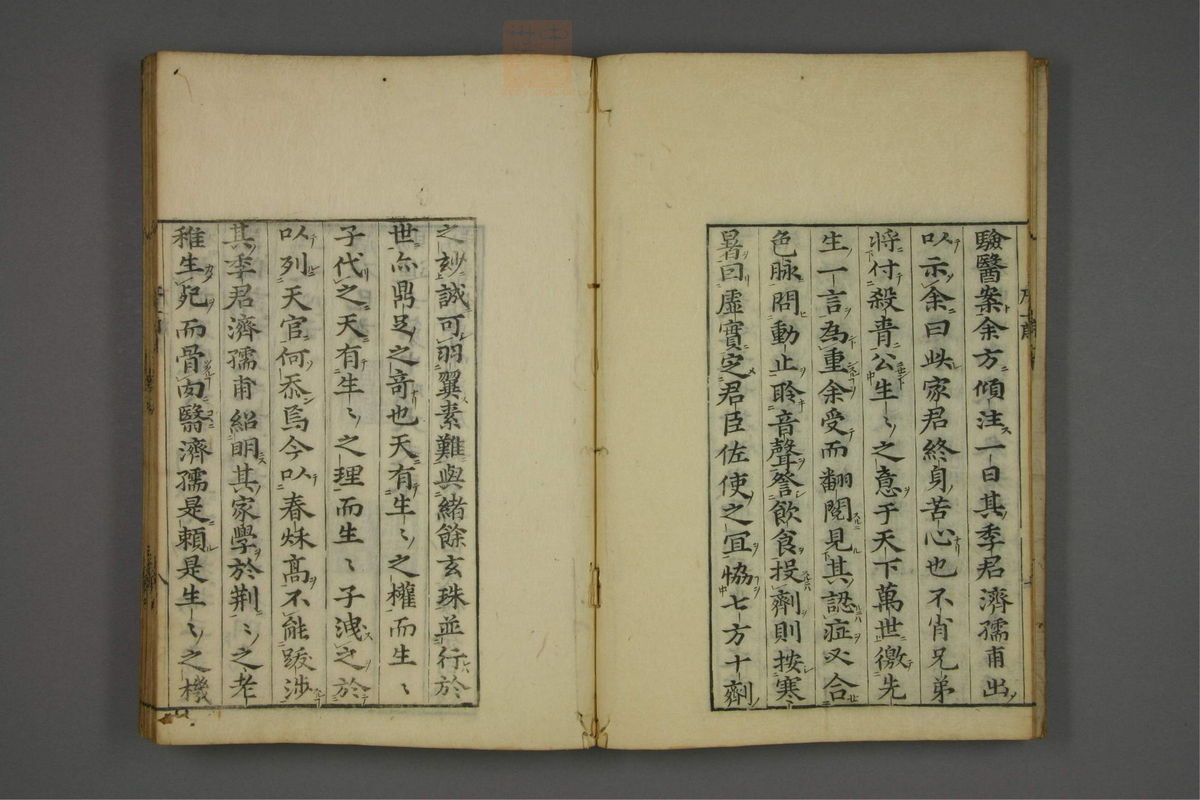 驗醫案余方傾注一日其季君濟孺甫出
以示余曰此家君終身苦心也不肖兄弟
將付殺青公生〻之意于天下萬世徼先
生一言為重余受而翻閱見其認症又合
色脉問動止聆音聲詧飲食投劑則按寒
暑因虛實定君臣佐使之宜恊七方十劑
之玅誠可羽翼素難與緒餘玄珠並行於
世亦鼎足之竒也天有生〻之權而生〻
子代之天有生〻之理而生〻子洩之於
以列天官何忝焉今以春秌髙不能跋涉
其季君濟孺甫紹明其家學於荆〻之老
稚生死而骨肉醫濟孺是頼是生〻之機